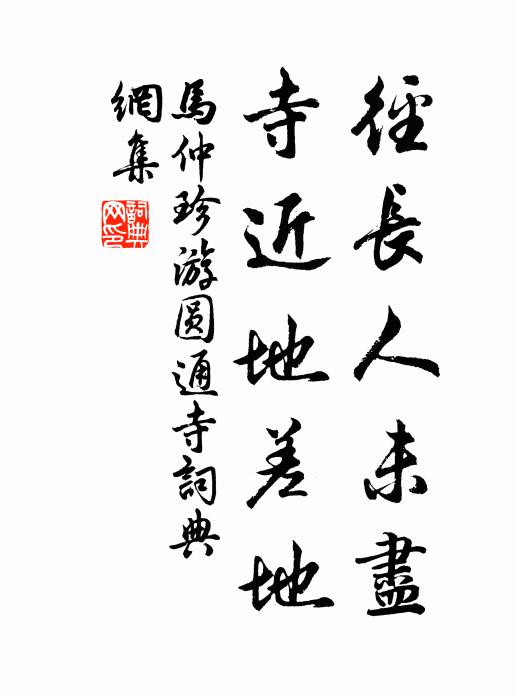 徑長人未盡
寺近地差地
馬仲珍游圓通寺詞典
網集
詞典
網印